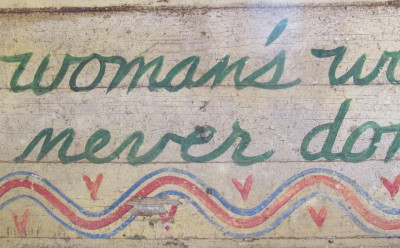 woman's wo
never don